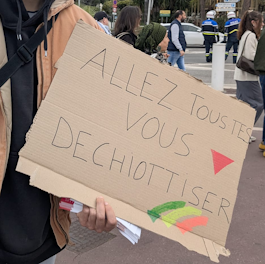 ALLEZ TOUSTES
VOUS
DECHIOTTISER